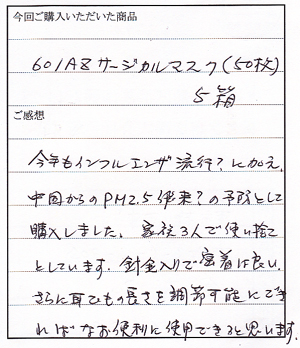 今回ご購入いただいた商品
601AZサージカルマスク(50枚)
5箱
ご感想
今年もインフルエンザ流行?に加え、
中国からのPM2.5伝来?の予防として
購入しました。家族3人で使い捨て
としています。針金入りで密着は良い。
さらに耳ひもの長さを調節可能にでき
ればなお便利に使用できると思います。